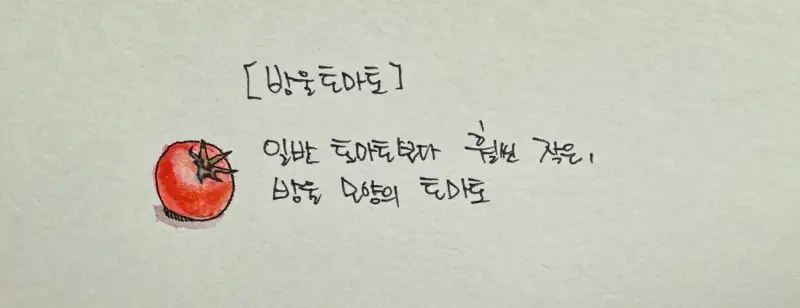 [방울토마토]
일반 토마토보다 훨씬 작은,
방울 모양의 토마토